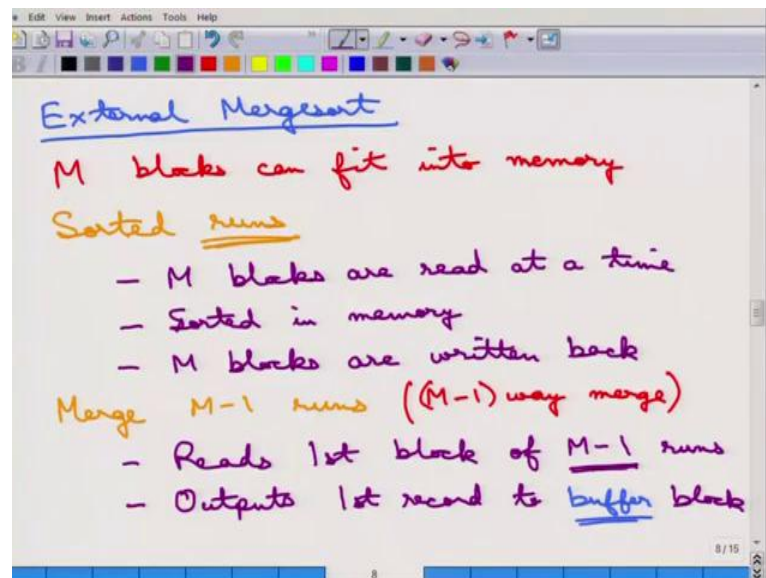 e Edit View Insert Actions Tools Help
External Mergesort
M blocks can fit into memory
Sorted runs
- M blocks are read at a time
- Sorted in memory
- M blocks are written back
Merge M-1 runs ((M-1) way merge)
- Reads 1st block of M-1 runs
- Outputs 1st record to buffer block
8/15
8